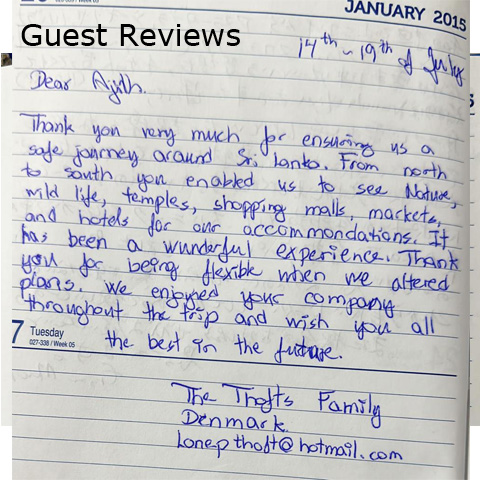 JANUARY 2015
Guest Reviews
14th ~ 19th of July
Dear Ajith.
Thank you very much for ensuring us a
safe journey around Sri lanka. From north
to south you enabled us to see Nature,
wild life, temples, shopping malls, markets,
and hotels for our accommondations. It
has been a wunderful experience. Thank
you for being flexible when we altered
plans. We enjoyed your company
throughout the trip and wish you all
7 Tuesday
027-338 / Week 05
the best in the future.
The Thofts Family
Denmark
lonepthoft@hotmail.com